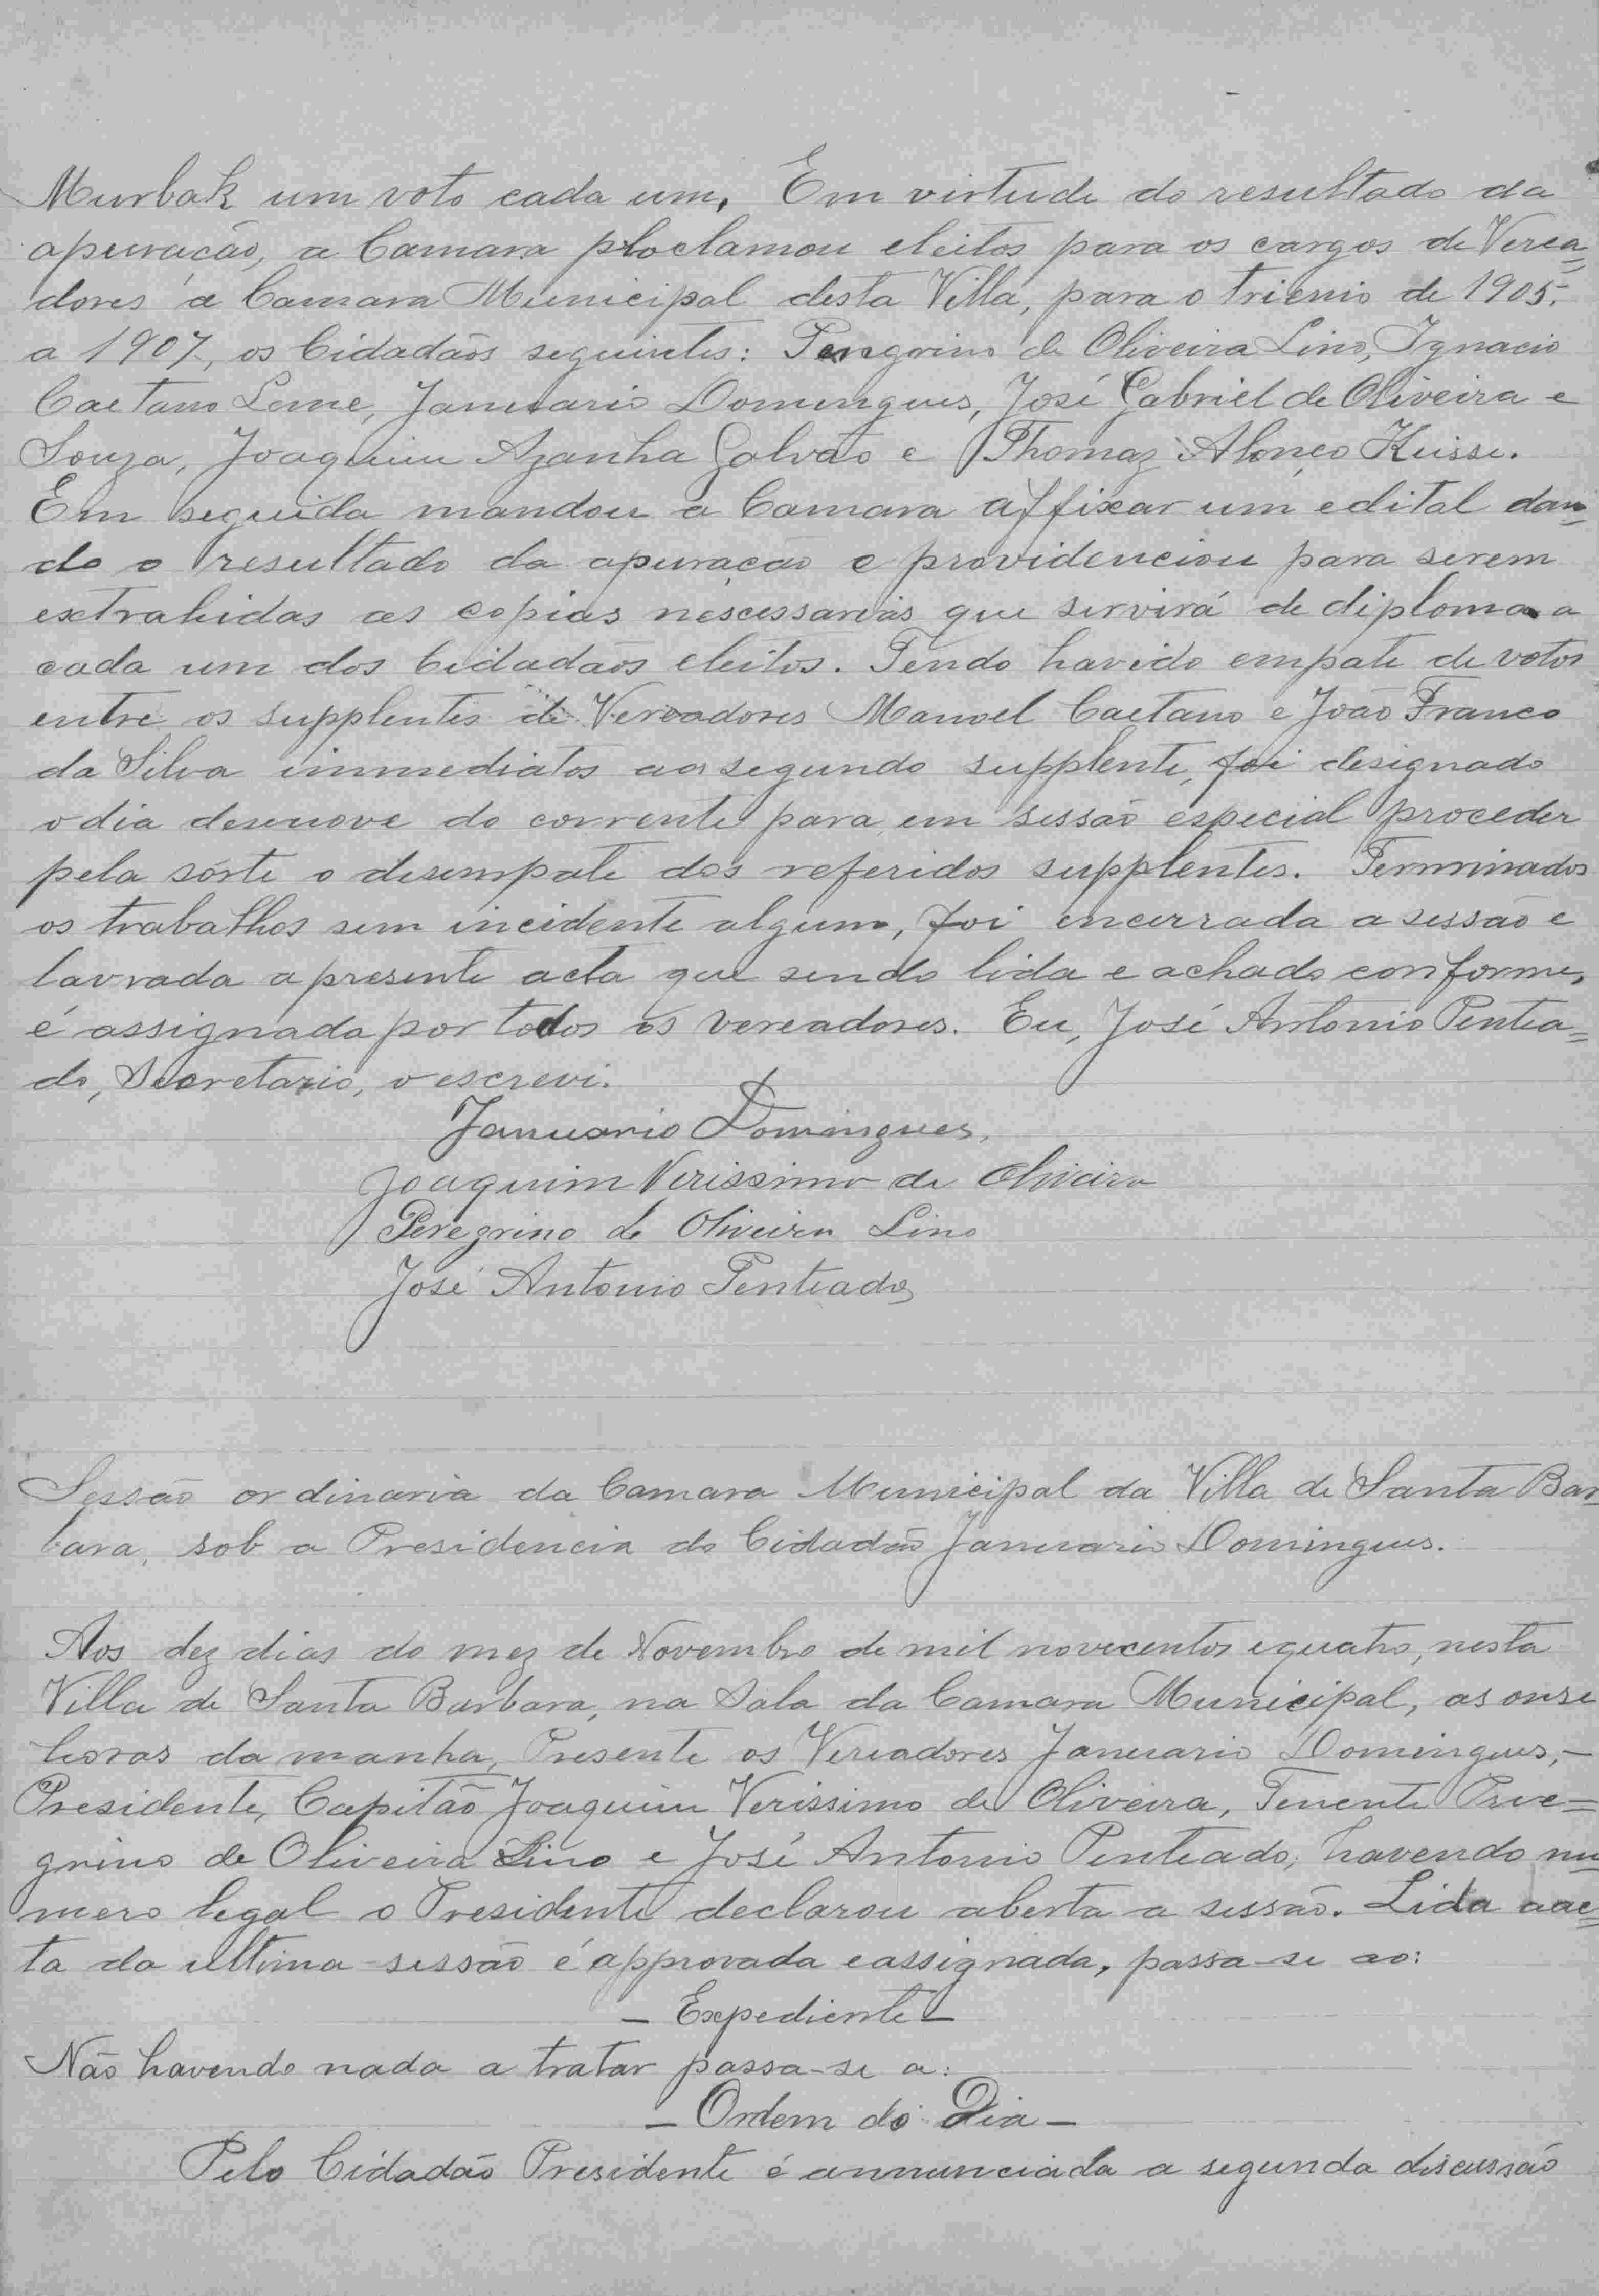 Murbak um voto cada um. Em virtude do resultado da
apuração, a Camara ploclamou eleitos para os cargos de Verea=
dores a Camara Municipal desta Villa, para o trienio de 1905.
a 1907, os Cidadãos seguintes: Peregrino de Oliveira Lino, Ignacio
Caetano Leme, Januario Domingues, José Gabriel de Oliveira e
Souza, Joaquim Azanha Galvão e Thomaz Alonço Keisse.
Em seguida mandou a Camara affixar um edital dan=
do o resultado da apuração e providenciou para serem
extrahidas as copias nescessarias que servirá de diploma a
cada um dos Cidadãos eleitos. Tendo havido empate de votos
entre os supplentes de Vereadores Manoel Caetano e João Franco
da Silva immediatos aos segundo supplente, foi designado
o dia desenove do corrente para em sessão especial proceder
pela sórte o desempate dos referidos supplentes. Terminados
os trabalhos sem incidente algum, foi encerrada a sessão e
lavrada a presente acta que sendo lida e achado conforme,
é assignada por todos os vereadores. Eu, José Antonio Pentea=
do, Secretario, o escrevi.
Januario Domingues,
Joaquim Verissimo de Oliveira
Peregrino de Oliveira Lino
José Antonio Penteado
Sessão ordinaria da Camara Municipal da Villa de Santa Bar=
bara, sob a Presidencia do Cidadão Januario Domingues.
Aos dez dias do mez de Novembro de mil novecentos e quatro, nesta
Villa de Santa Barbara, na Sala da Camara Municipal, as onse
horas da manha, Presente os Vereadores Januario Domingues,-
Presidente, Capitão Joaquim Verissimo de Oliveira, Tenente Pere=
grino de Oliveira Lino e José Antonio Penteado, havendo nu=
mero legal o Presidente declarou aberta a sessão. Lida a ac=
ta da ultima sessão é approvada e assignada, passa-se ao:
- Expediente -
Não havendo nada a tratar passa-se a:
- Ordem do Dia -
Pelo Cidadão Presidente é annunciada a segunda discussão